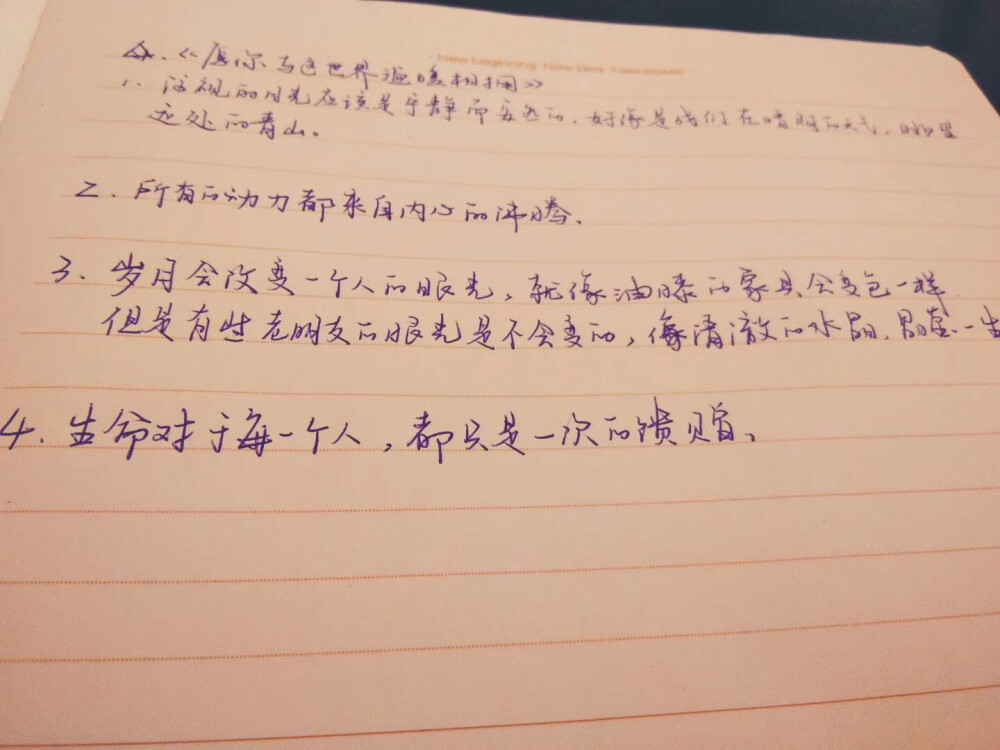 New beginning New idea New power
《愿你与这世界温暖相拥》
1、注视的目光应该是宁静而安然的,好像是我们在晴朗的天气,眺望
远处的青山。
2、所有的动力都来自内心的沸腾、
3、岁月会改变一个人的眼光,就像油漆的家具会变色一样
但是有些老朋友的眼光是不会变的,像清澈的水晶,晶莹一生
4、生命对于每一个人,都只是一次的馈赠、